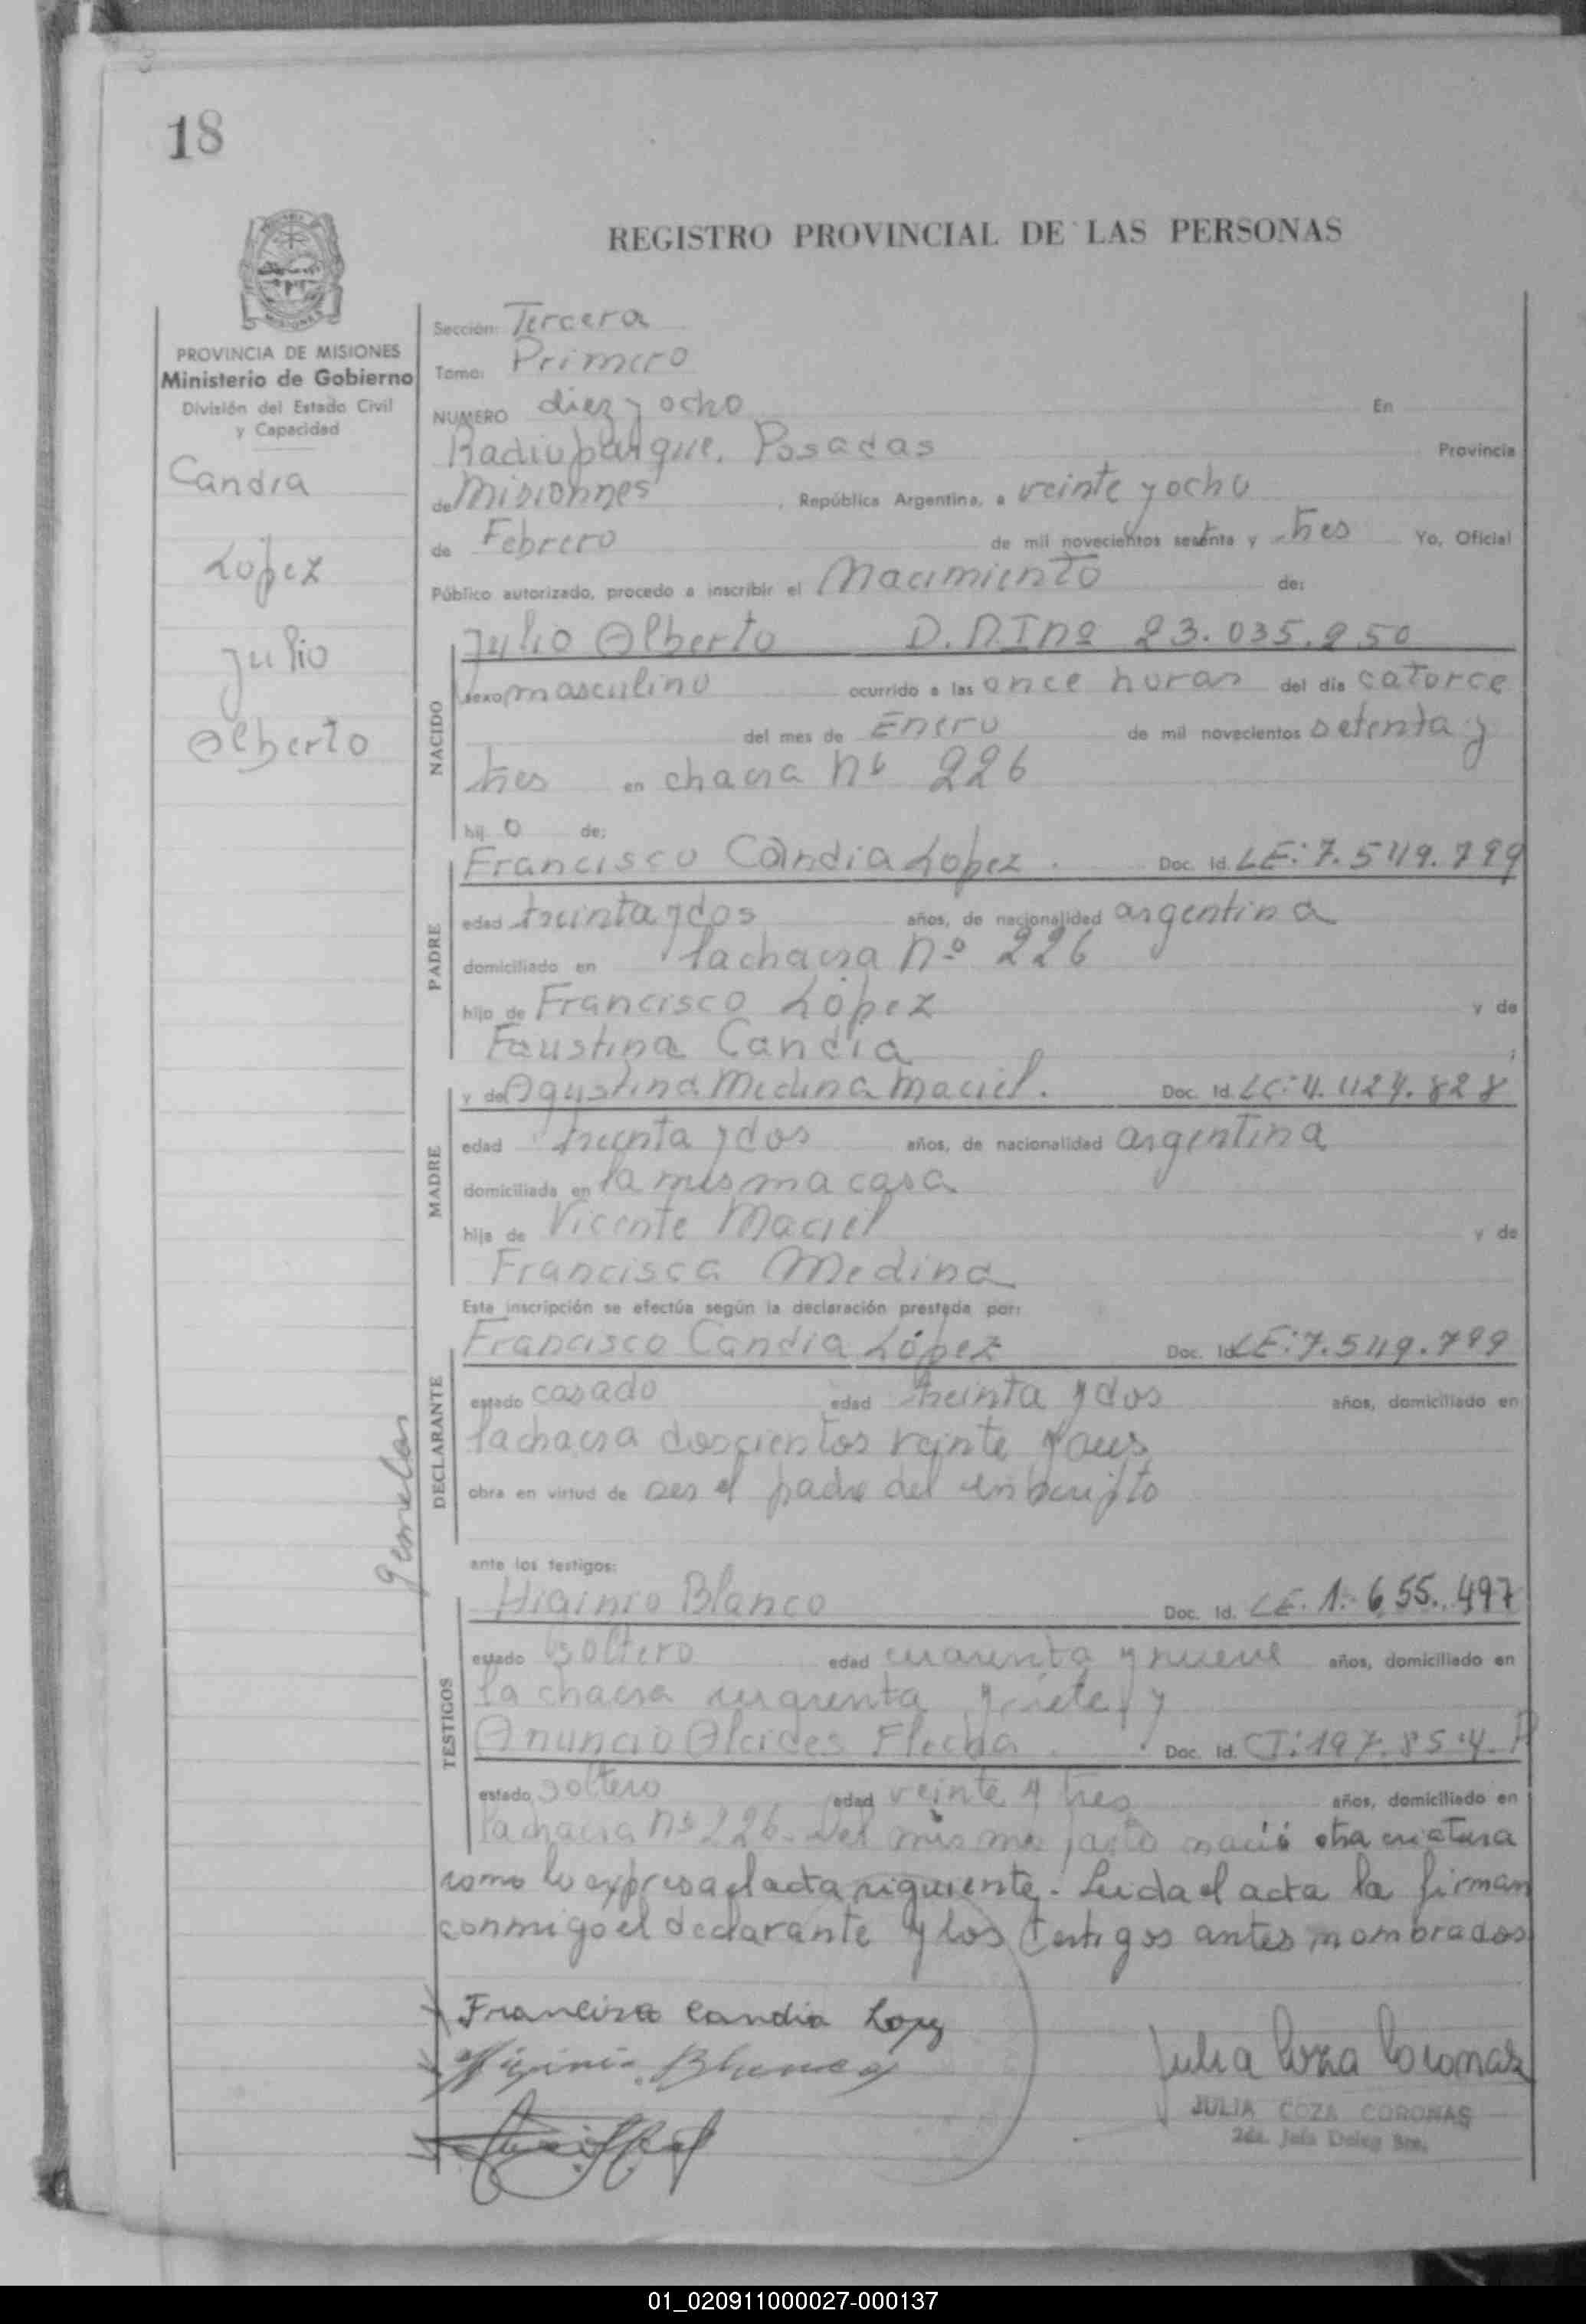 18
REGISTRO PROVINCIAL DE LAS PERSONAS
PROVINCIA DE MISIONES
Ministerio de Gobierno
División del Estado Civil
y Capacidad
Candia
López
Julio
Alberto
Sección: Tercera
Tomo: Primero
NUMERO diez y ocho En
Radioparque, Posadas Provincia
de Misionnes, República Argentina, a veinte y ocho
de Febrero de mil novecientos setenta y tres Yo, Oficial
Público autorizado, procedo a inscribir el Nacimiento de:
NACIDO
Julio Alberto D.N.I nº 23.035.250
sexo masculino ocurrido a las once horas del día catorce
del mes de Enero de mil novecientos setenta y
tres en chacra nº 226
hij o de:
PADRE
Francisco Candia Lopez. Doc. Id. LE: 7.549.799
edad treinta y dos años, de nacionalidad argentina
domiciliado en la chacra nº 226
hijo de Francisco López y de
Faustina Candia;
MADRE
y de Agustina Medina Maciel. Doc. Id. LC: 4.424.828
edad treinta y dos años, de nacionalidad argentina
domiciliada en la misma casa
hija de Vicente Maciel y de
Francisca Medina
Esta inscripción se efectúa según la declaración prestada por:
DECLARANTE
Francisco Candia López Doc. Id. LE: 7.549.799
estado casado edad treinta y dos años, domiciliado en
la chacra doscientos veinte y seis
obra en virtud de ser el padre del inscripto
gemelos
ante los testigos:
TESTIGOS
Higinio Blanco Doc. Id. LE. 1.655.497
estado soltero edad cuarenta y nueve años, domiciliado en
la chacra cuarenta y siete, y
Anuncio Alcides Flecha. Doc. Id. CI: 197.854.P
estado soltero edad veinte y tres años, domiciliado en
la chacra nº 226. Del mismo parto nació otra criatura
como lo expresa el acta siguiente. Leída el acta la firman
conmigo el declarante y los testigos antes nombrados
Francisco Candia Lopez
Higinio Blanco
Julia Coza Coronas
JULIA COZA CORONAS
01_020911000027-000137